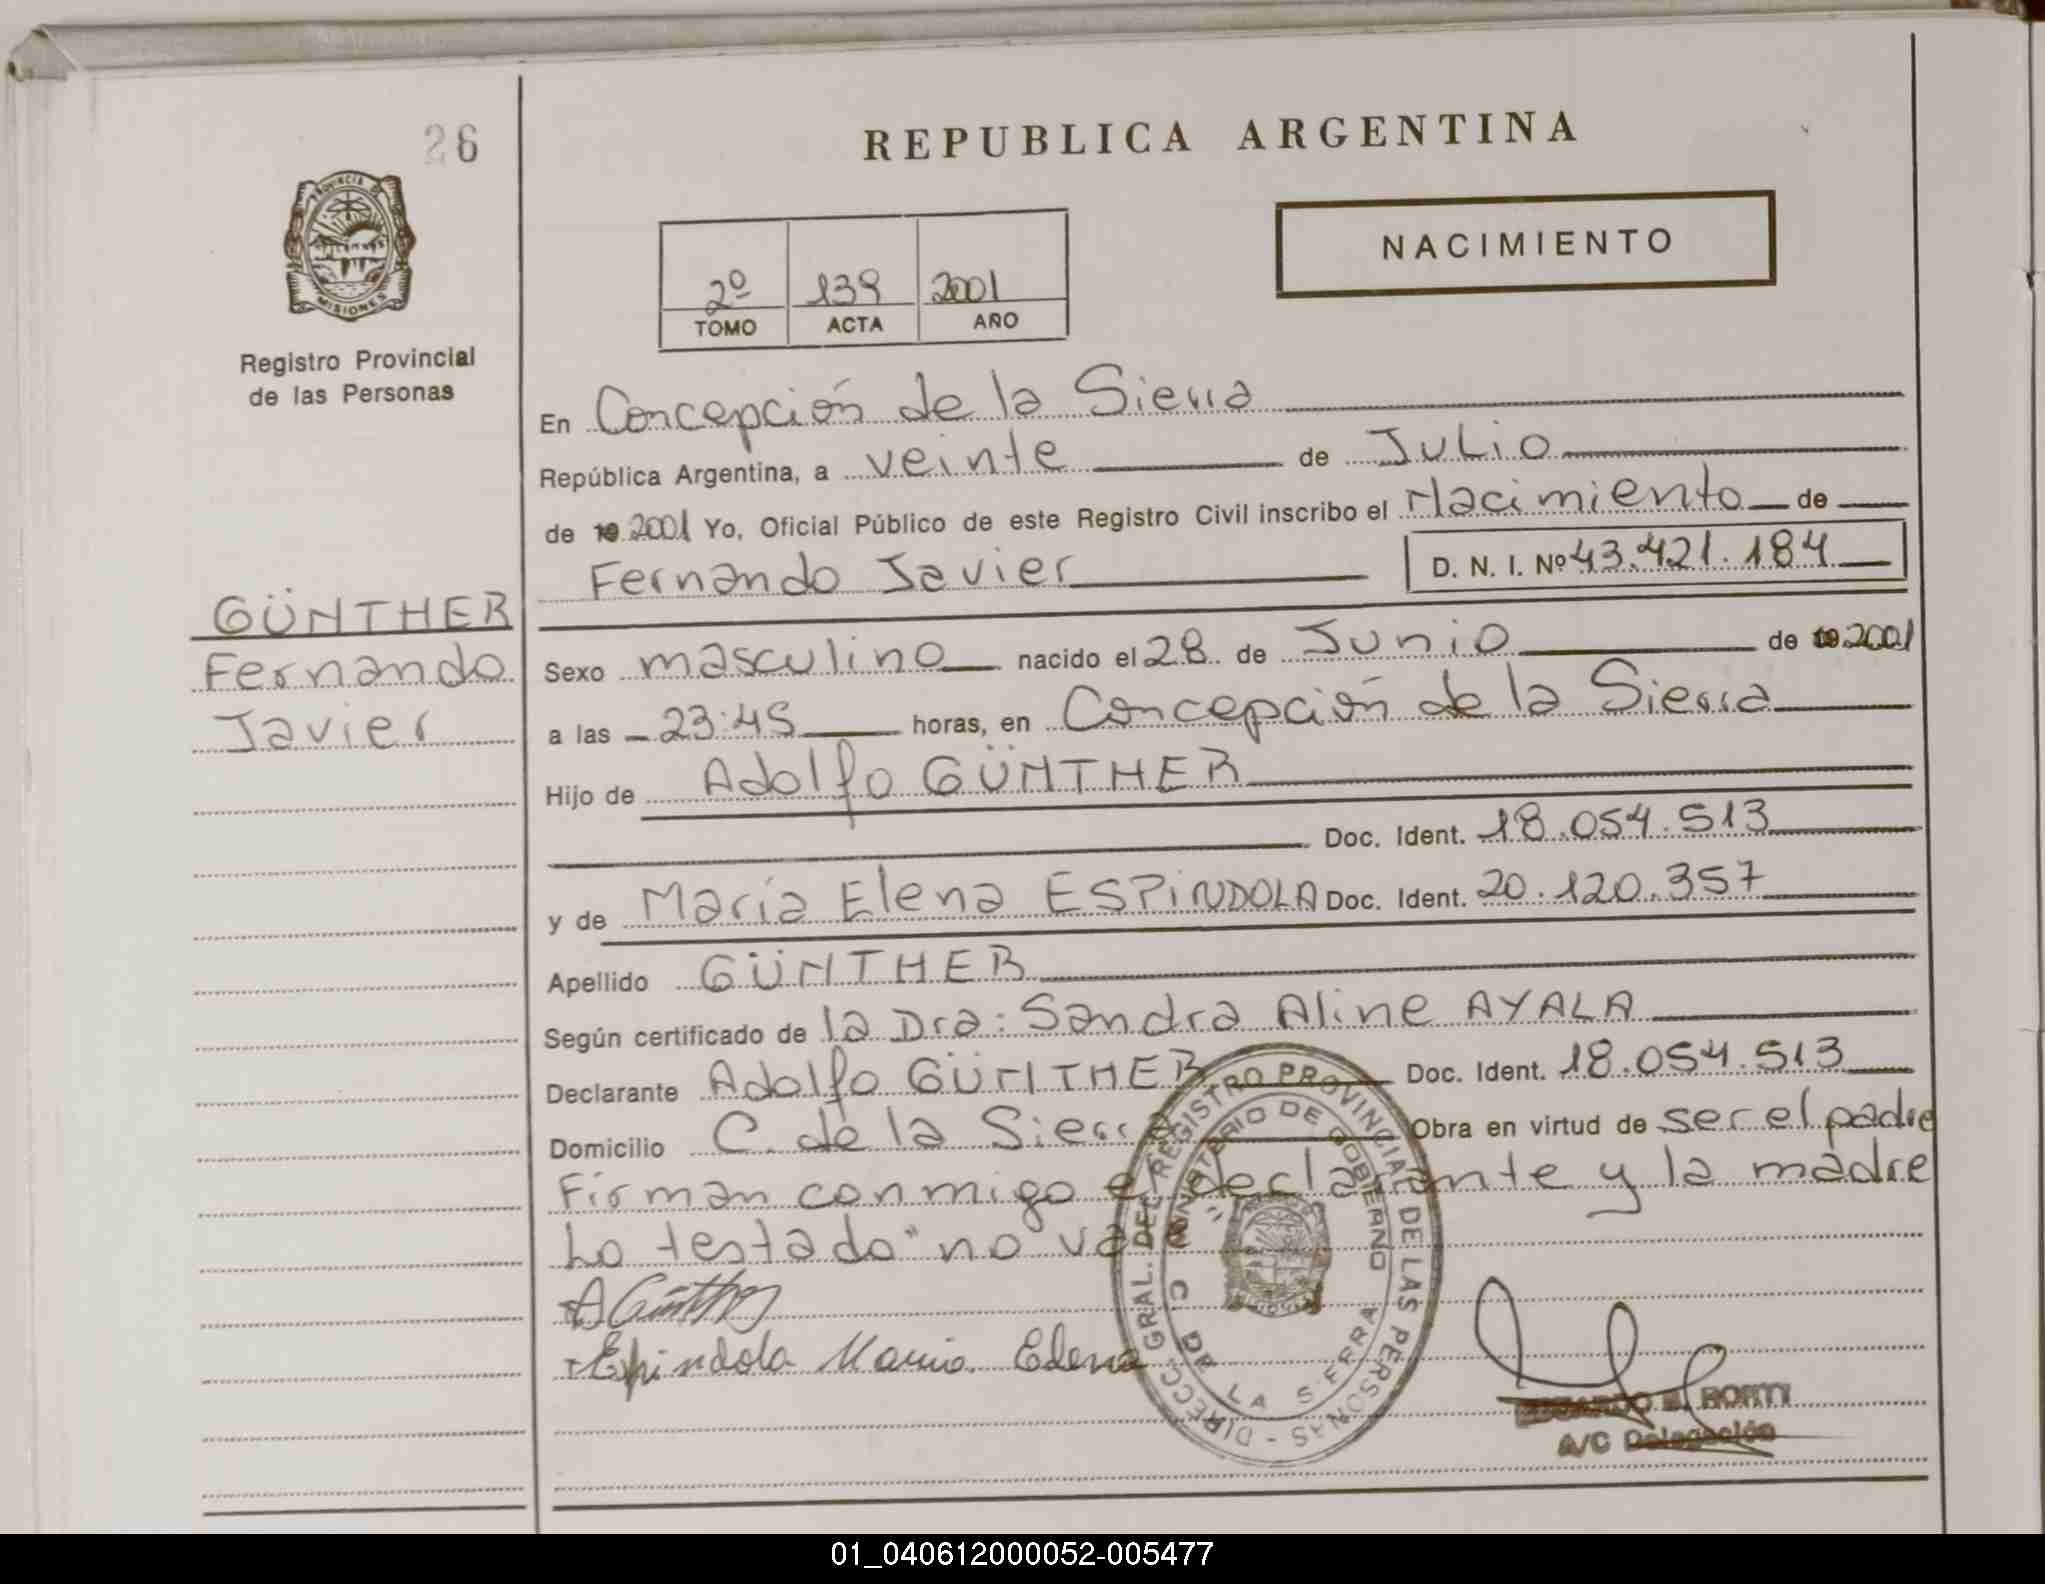 26
REPUBLICA ARGENTINA
PROVINCIA DE MISIONES
NACIMIENTO
2º 139 2001
TOMO ACTA AÑO
Registro Provincial
de las Personas
En Concepción de la Sierra
República Argentina, a veinte de Julio
de 19 2001 Yo, Oficial Público de este Registro Civil inscribo el Nacimiento de
Fernando Javier D. N. I. Nº 43.421.184
GÜNTHER
Fernando
Javier
Sexo masculino nacido el 28 de Junio de 19 2001
a las 23:45 horas, en Concepción de la Sierra
Hijo de Adolfo GÜNTHER
Doc. Ident. 18.054.513
y de María Elena ESPINDOLA Doc. Ident. 20.120.357
Apellido GÜNTHER
Según certificado de la Dra: Sandra Aline AYALA
Declarante Adolfo GÜNTHER Doc. Ident. 18.054.513
Domicilio C. de la Sierra Obra en virtud de ser el padre
Firman conmigo el declarante y la madre
Lo testado "no vale"
A Günther
Espindola Maria Elena
DIRECC. GRAL. DEL REGISTRO PROVINCIAL DE LAS PERSONAS -
MINISTERIO DE GOBIERNO
C DE LA SIERRA
A/C Delegación
01_040612000052-005477